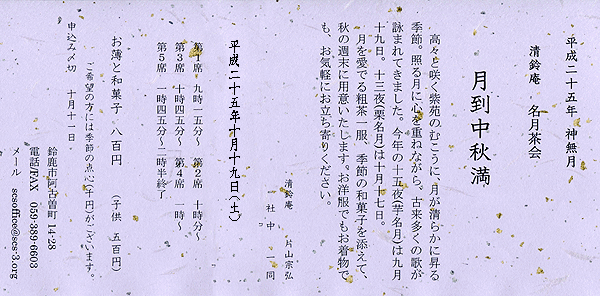 平成二十五年 神無月
清鈴庵 名月茶会
月到中秋満
高々と咲く紫苑のむこうに、月が清らかに昇る
季節。照る月に心を重ねながら、古来多くの歌が
詠まれてきました。今年の十五夜(芋名月)は九月
十九日。十三夜(栗名月)は十月十七日。
月を愛でる粗茶一服、季節の和菓子を添えて、
秋の週末に用意いたします。お洋服でもお着物で
も、お気軽にお立ち寄りください。
清鈴庵 片山宗弘
社中一同
平成二十五年十月十九日(土)
第1席 九時一五分〜 第2席 十時分〜
第3席 十時四五分〜 第4席 一時〜
第5席 一時四五分〜二時半終了
お薄と和菓子 八百円 (子供 五百円)
ご希望の方には季節の点心(千円)がございます。
申込み〆切 十月十一日
鈴鹿市阿古曽町 14-28
電話/FAX 059-389-6603
メール scsoffice@scs-3.org